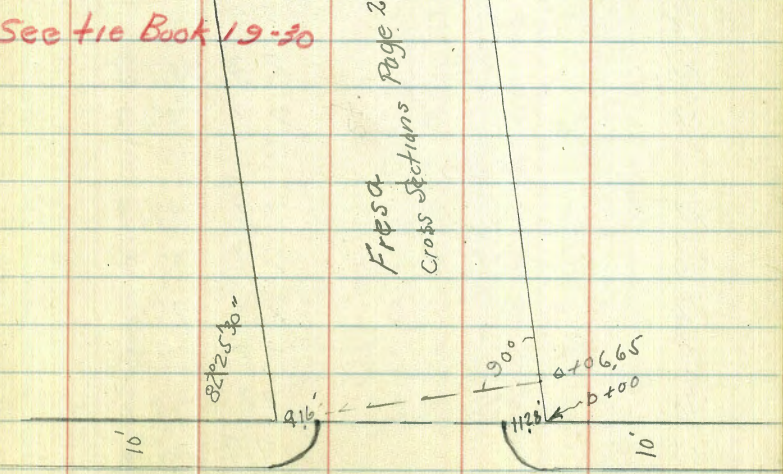 See tie Book 19-30
Fresa
Cross Sections Page 2
82°25'30"
90°
0+06.65
0+00
9.16'
11.28'
10'
10'